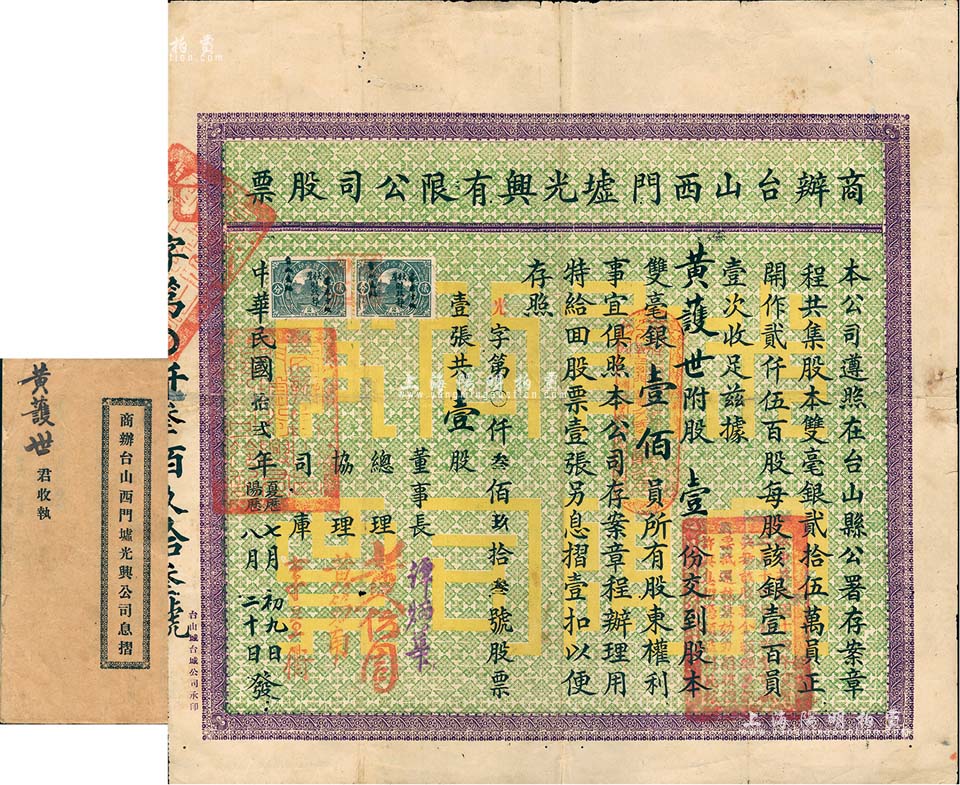 商辦台山西門墟光興有限公司股票
本公司遵照在台山縣公署存案章
程共集股本雙毫銀貳拾伍萬員正
開作貳仟伍百股每股該銀壹百員
壹次收足茲據
黃護世附股壹份交到股本
雙毫銀壹佰員所有股東權利
事宜俱照本公司存案章程辦理用
特給回股票壹張另息摺壹扣以便
存照
光字第〇仟叁佰玖拾叁號股票
壹張共壹股
董事長
總理
協理
司庫
中華民國拾弍年夏曆七月初九日陽歷八月二十日發
字第〇仟叁百玖拾叁號
台山城台城公司承印
商辦台山西門墟光興公司息摺
黃護世君收執
上海陽明拍賣